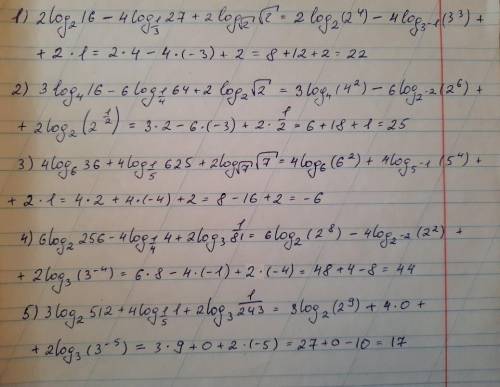 1) 2log₂16 − 4log_{1/3}27 + 2log_{√2}√2 = 2log₂(2⁴) − 4log_{3⁻¹}(3³) +
+ 2·1 = 2·4 − 4·(−3) + 2 = 8+12+2 = 22
2) 3log₄16 − 6log_{1/4}64 + 2log₂√2 = 3log₄(4²) − 6log_{2⁻²}(2⁶) +
+ 2log₂(2^{1/2}) = 3·2 − 6·(−3) + 2·1/2 = 6+18+1 = 25
3) 4log₆36 + 4log_{1/5}625 + 2log_{√7}√7 = 4log₆(6²) + 4log_{5⁻¹}(5⁴) +
+ 2·1 = 4·2 + 4·(−4) + 2 = 8 − 16 + 2 = −6
4) 6log₂256 − 4log_{1/4}4 + 2log₃1/81 = 6log₂(2⁸) − 4log_{2⁻²}(2²) +
+ 2log₃(3⁻⁴) = 6·8 − 4·(−1) + 2·(−4) = 48+4−8 = 44
5) 3log₂512 + 4log_{1/5}1 + 2log₃1/243 = 3log₂(2⁹) + 4·0 +
+ 2log₃(3⁻⁵) = 3·9 + 0 + 2·(−5) = 27+0−10 = 17